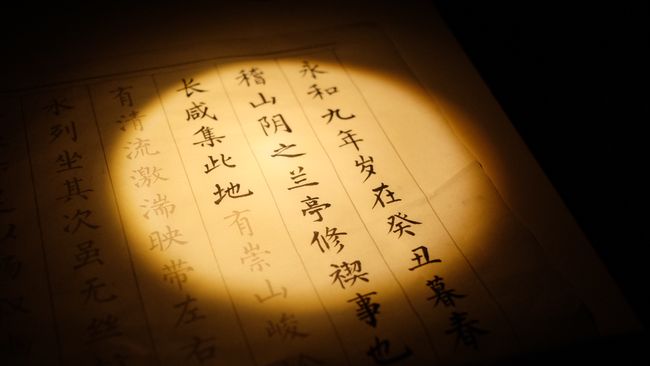 永和九年岁在癸丑暮春
稽山阴之兰亭修禊事也
长咸集此地有崇山峻
有清流激湍映带左右
水列坐其次虽无丝